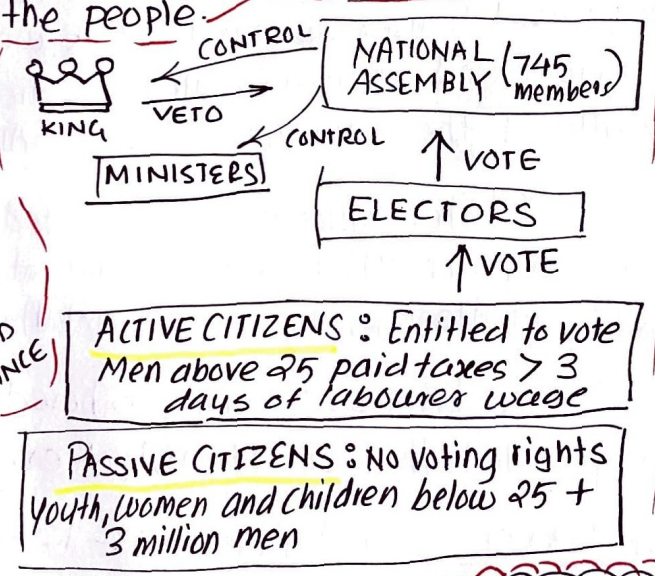 the people.
CONTROL
NATIONAL
ASSEMBLY (745 members)
KING
VETO
CONTROL
MINISTERS
↑ VOTE
ELECTORS
↑ VOTE
ACTIVE CITIZENS : Entitled to vote
Men above 25 paid taxes > 3
days of labourer wage
PASSIVE CITIZENS : No voting rights
youth, women and children below 25 +
3 million men